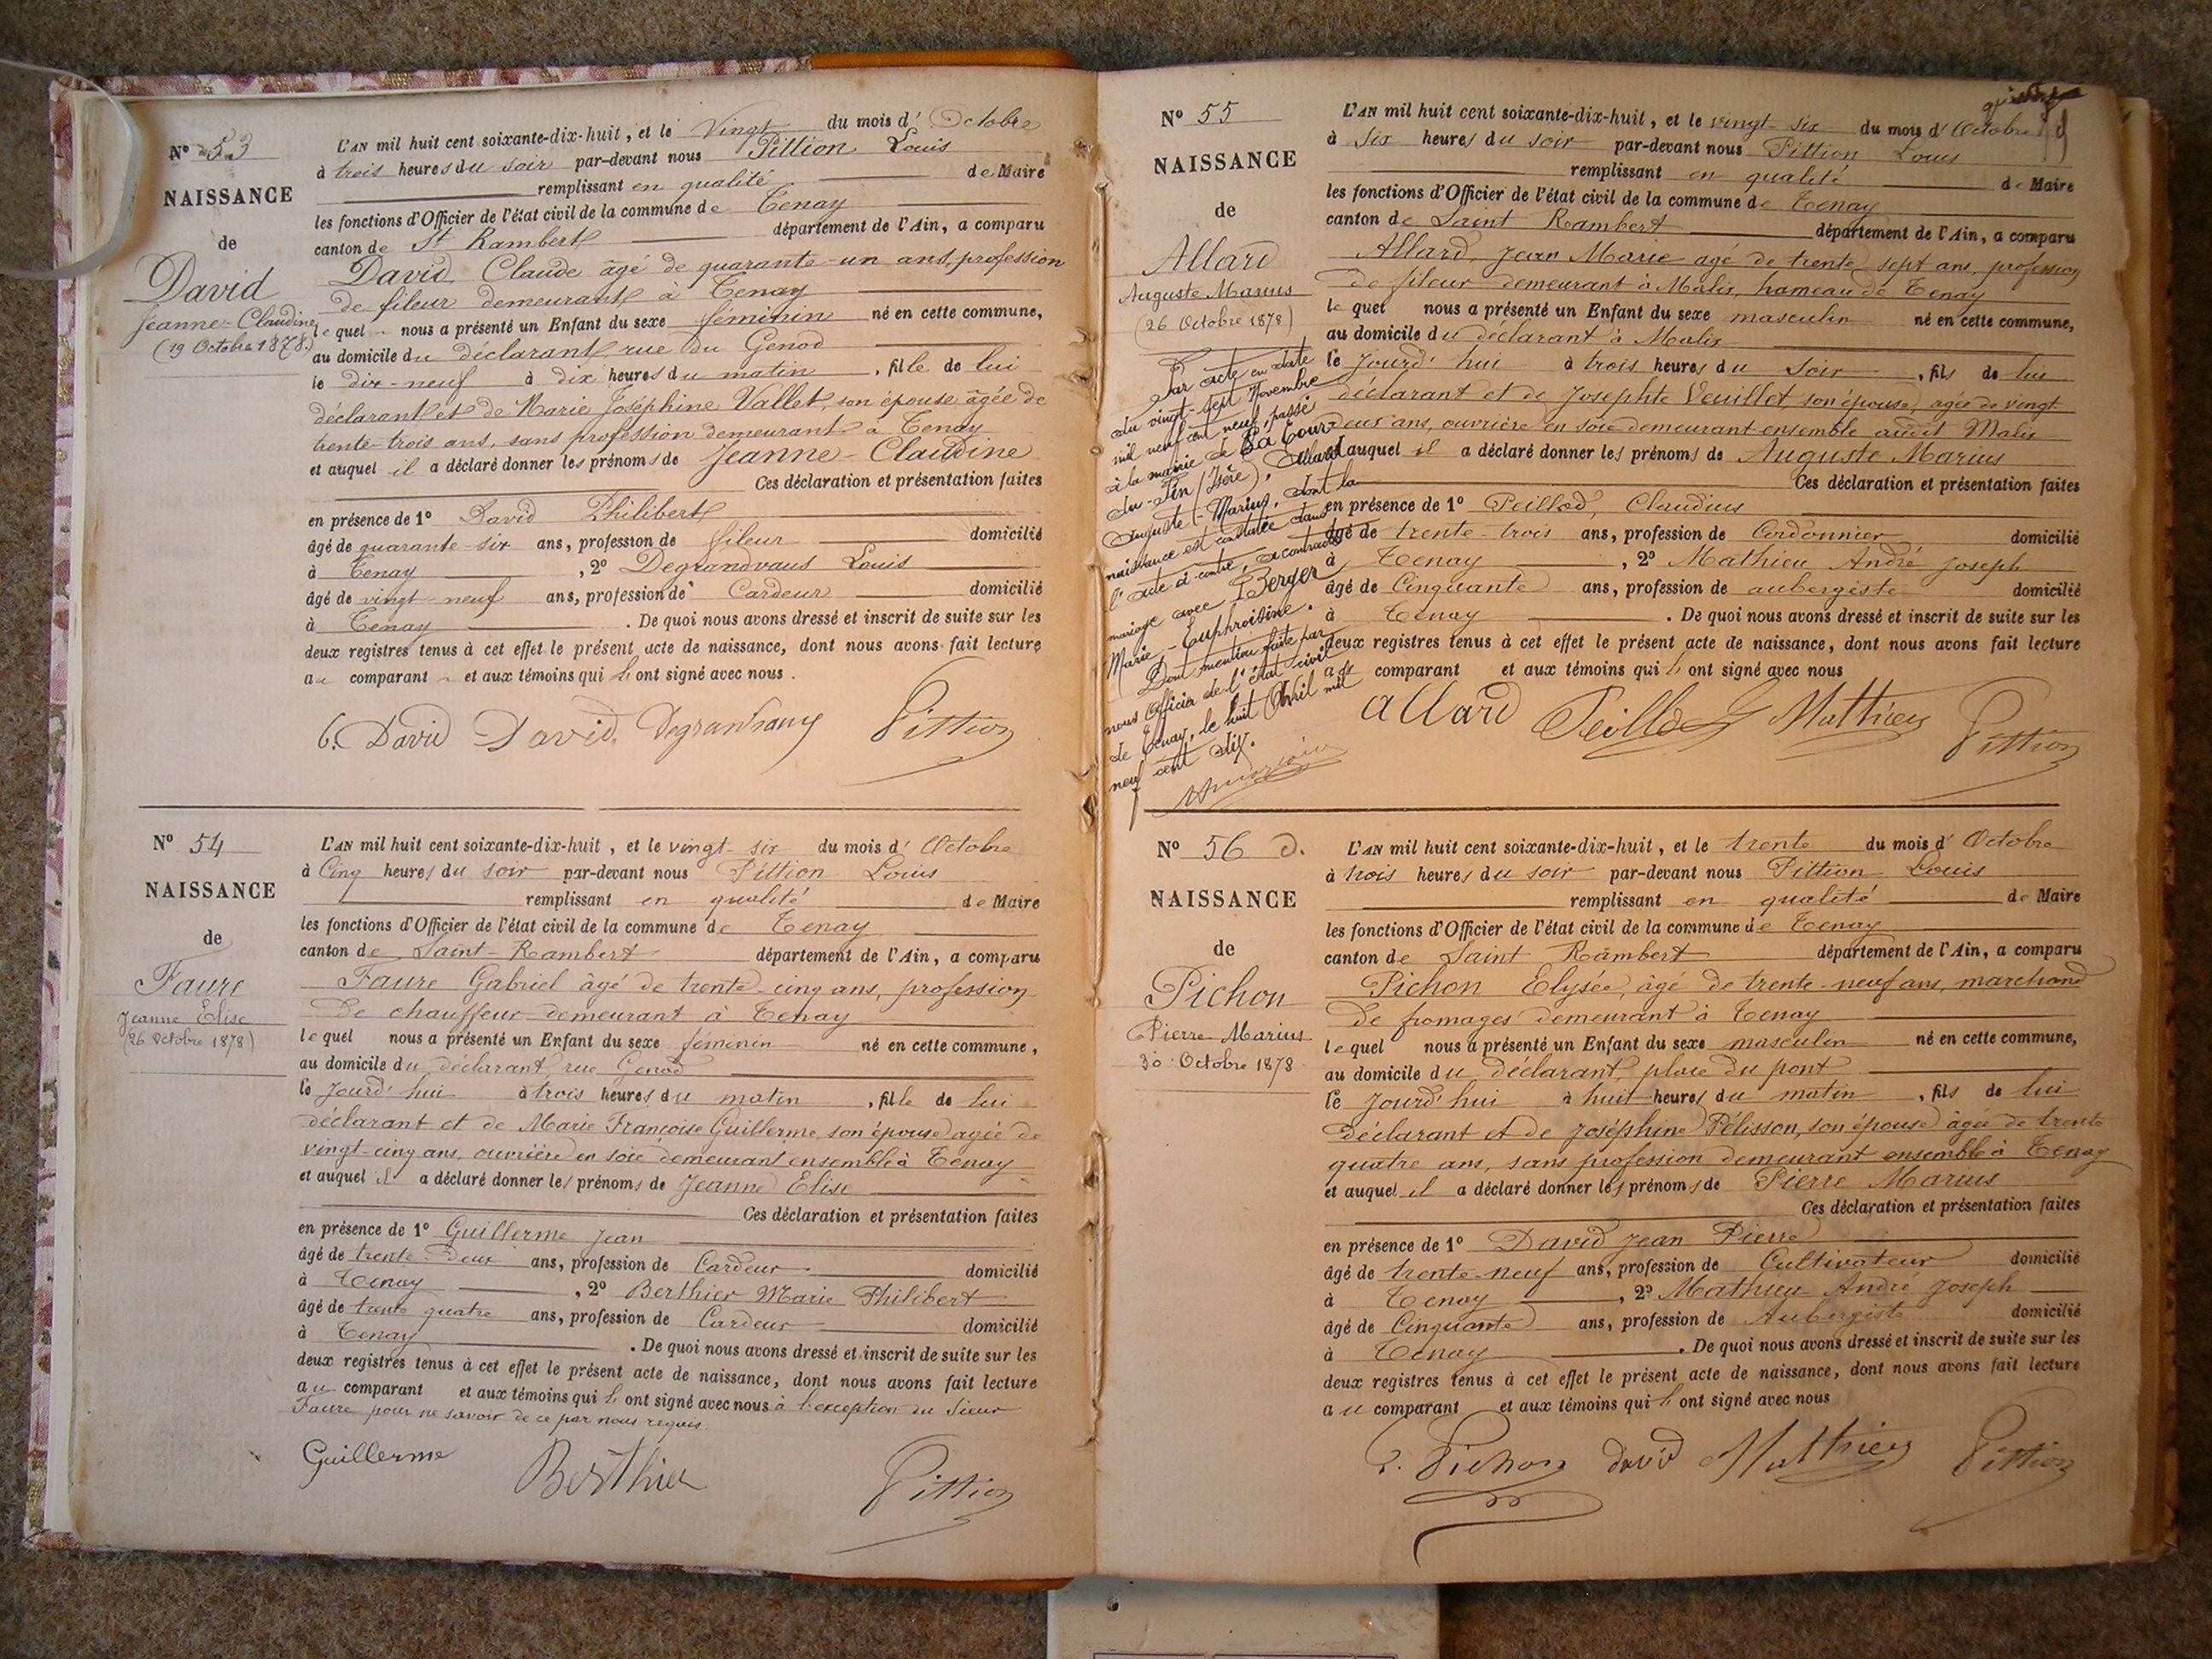 Nº 53
NAISSANCE
de
David
Jeanne-Claudine
(19 Octobre 1878)
L'AN mil huit cent soixante-dix-huit, et le Vingt du mois d' Octobre
à trois heures du soir par-devant nous Pittion Louis
remplissant en qualité de Maire
les fonctions d'Officier de l'état civil de la commune de Tenay
canton de St Rambert département de l'Ain, a comparu
David Claude âgé de quarante-un ans, profession
de fileur demeurant à Tenay
lequel nous a présenté un Enfant du sexe féminin né en cette commune,
au domicile du déclarant, rue du Genod
le dix-neuf à dix heures du matin, fille de lui
déclarant et de Marie Joséphine Vallet, son épouse, âgée de
trente-trois ans, sans profession demeurant à Tenay
et auquel il a déclaré donner les prénoms de Jeanne-Claudine
Ces déclaration et présentation faites
en présence de 1º David Philibert
âgé de quarante-six ans, profession de fileur domicilié
à Tenay, 2º Degrandvaus Louis
âgé de vingt-neuf ans, profession de Cardeur domicilié
à Tenay. De quoi nous avons dressé et inscrit de suite sur les
deux registres tenus à cet effet le présent acte de naissance, dont nous avons fait lecture
au comparant et aux témoins qui l' ont signé avec nous.
C. David David Degrandvaux Pittion
Nº 54
NAISSANCE
de
Faure
Jeanne Elise
(26 Octobre 1878)
L'AN mil huit cent soixante-dix-huit, et le vingt-six du mois d' Octobre
à Cinq heures du soir par-devant nous Pittion Louis
remplissant en qualité de Maire
les fonctions d'Officier de l'état civil de la commune de Tenay
canton de Saint-Rambert département de l'Ain, a comparu
Faure Gabriel âgé de trente-cinq ans, profession
de chauffeur demeurant à Tenay
lequel nous a présenté un Enfant du sexe féminin né en cette commune,
au domicile du déclarant, rue Genod
le Jourd'hui à trois heures du matin, fille de lui
déclarant et de Marie Françoise Guillerme, son épouse, agée de
vingt-cinq ans, ouvrière en soie demeurant ensemble à Tenay
et auquel il a déclaré donner les prénoms de Jeanne Elise
Ces déclaration et présentation faites
en présence de 1º Guillerme Jean
âgé de trente-deux ans, profession de Cardeur domicilié
à Tenay, 2º Berthier Marie Philibert
âgé de trente quatre ans, profession de Cardeur domicilié
à Tenay. De quoi nous avons dressé et inscrit de suite sur les
deux registres tenus à cet effet le présent acte de naissance, dont nous avons fait lecture
au comparant et aux témoins qui l' ont signé avec nous à l'exception du Sieur
Faure pour ne savoir de ce par nous requis.
Guillerme Berthier Pittion
Nº 55
NAISSANCE
de
Allard
Auguste Marius
(26 Octobre 1878)
Par acte en date
du vingt-sept Novembre
mil neuf cent neuf, passé
à la mairie de La Tour-
du-Pin (Isère), Allard
Auguste-Marius, dont la
naissance est constatée dans
l'acte ci-contre, a contracté
mariage avec Berger
Marie-Euphrosine.
Dont mention faite par
nous Officier de l'état civil
de Tenay, le huit Avril mil
neuf cent dix.
L'AN mil huit cent soixante-dix-huit, et le vingt-six du mois d' Octobre
à Six heures du soir par-devant nous Pittion Louis
remplissant en qualité de Maire
les fonctions d'Officier de l'état civil de la commune de Tenay
canton de Saint Rambert département de l'Ain, a comparu
Allard, Jean Marie agé de trente-sept ans, profession
de fileur demeurant à Malix, hameau de Tenay
lequel nous a présenté un Enfant du sexe masculin né en cette commune,
au domicile du déclarant à Malix
le Jourd'hui à trois heures du Soir, fils de lui
déclarant et de Josephte Veuillet, son épouse, agée de vingt-
deux ans, ouvrière en soie demeurant ensemble audit Malix
et auquel il a déclaré donner les prénoms de Auguste Marius
Ces déclaration et présentation faites
en présence de 1º Peillod, Claudius
âgé de trente-trois ans, profession de Cordonnier domicilié
à Tenay, 2º Mathieu André Joseph
âgé de Cinquante ans, profession de aubergiste domicilié
à Tenay. De quoi nous avons dressé et inscrit de suite sur les
deux registres tenus à cet effet le présent acte de naissance, dont nous avons fait lecture
au comparant et aux témoins qui l' ont signé avec nous
Allard Peillod Mathieu Pittion
Nº 56 D.
NAISSANCE
de
Pichon
Pierre Marius
30 Octobre 1878
L'AN mil huit cent soixante-dix-huit, et le trente du mois d' Octobre
à trois heures du soir par-devant nous Pittion Louis
remplissant en qualité de Maire
les fonctions d'Officier de l'état civil de la commune de Tenay
canton de Saint Rambert département de l'Ain, a comparu
Pichon Elysée, âgé de trente-neuf ans, marchand
de fromages demeurant à Tenay
lequel nous a présenté un Enfant du sexe masculin né en cette commune,
au domicile du déclarant, place du pont
le Jourd'hui à huit heures du matin, fils de lui
déclarant et de Joséphine Pélisson, son épouse âgée de trente
quatre ans, sans profession demeurant ensemble à Tenay
et auquel il a déclaré donner les prénoms de Pierre Marius
Ces déclaration et présentation faites
en présence de 1º David Jean Pierre
âgé de trente-neuf ans, profession de Cultivateur domicilié
à Tenay, 2º Mathieu André Joseph
âgé de Cinquante ans, profession de Aubergiste domicilié
à Tenay. De quoi nous avons dressé et inscrit de suite sur les
deux registres tenus à cet effet le présent acte de naissance, dont nous avons fait lecture
au comparant et aux témoins qui l' ont signé avec nous
Pichon David Mathieu Pittion